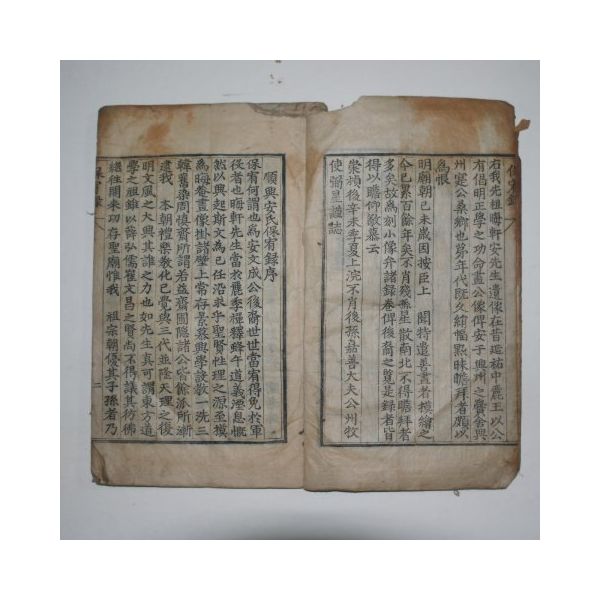 右我先祖晦軒安先生遺像在昔延祐中麗王以公
有倡明正學之功命畫公像俾安于興州之
州寔公桑鄕也年代旣久綃幅點昧瞻拜者頗以
爲恨
明廟朝己未歲因按臣上 聞特遣善畫者摸繪之
今已累百餘年矣不肖殘無星散南北不得瞻拜者
多矣故爲刻小像弁諸錄卷俾後裔之覽是錄者皆
得以瞻仰敬慕云
崇禎後辛未季夏上浣不肖後孫嘉善大夫公州牧
使 謹誌
順興安氏保宥錄序
保宥何謂也爲安文成公後裔世世當宥得免於軍
役者也晦軒先生當於麗季禪釋絳午道義湮息慨
然以興起斯文爲己任沿求乎聖賢性理之源至攗
爲晦菴畫像掛諸壁上常存景慕興學設敎一洗三
韓舊染周愼齋所謂若益齋圃隱諸公究餘派所漸
逮我 本朝禮樂敎化已覺與三代並隆天理之復
明文風之大興其誰之力也如先生眞可謂東方道
學之祖雖以薛弘儒崔文昌之賢尚不得議其彷彿
繼往開來功存聖廟惟我 祖宗朝優其子孫者乃
保宥錄
二